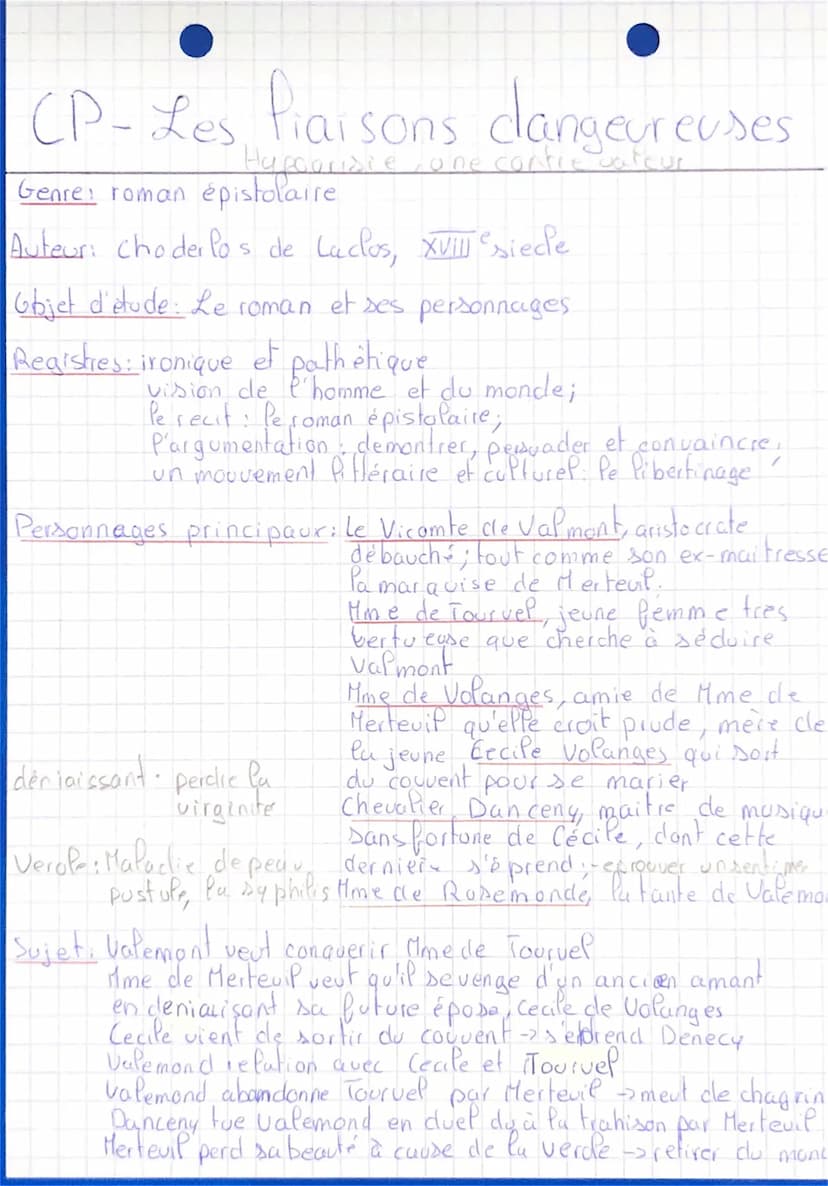 CP- Les liaisons dangeureuses
Hypocrisie, une contre valeur
Genre: roman épistolaire
Auteur: choderlos de Laclos, XVIIIe siecle
Objet d'étude: Le roman et ses personnages
Registres: ironique et pathétique
vision de l'homme et du monde;
le recit: le roman épistolaire;
l'argumentation: demontrer, persuader et convaincre,
un mouvement littéraire et culturel: le libertinage
Personnages principaux: Le Vicomte de Valmont, aristocrate
débauché; tout comme son ex-maitresse
la marquise de Merteuil.
Mme de Tourvel, jeune femme tres
vertueuse que cherche à séduire
Valmont
Mme de Volanges, amie de Mme de
Merteuil qu'elle croit prude, mère de
la jeune Cecile Volanges qui sort
déniaissant: perdre la du couvent pour se marier
virginité Chevalier Danceny, maitre de musiqu
sans fortune de Cécile, dont cette
Verole: Maladie de peau, derniere s'éprend:-eprouver un sentimen
pustule, la syphilis Mme de Rosemonde, la tante de Valemo
Sujet: Valemont veut conquerir Mme de Tourvel
Mme de Merteuil veut qu'il se venge d'un ancien amant
en deniaisant sa future épose, Cecile de Volanges
Cecile vient de sortir du couvent -> s'eprend Denecy
Valemond relation avec Cecile et Tourvel
Valemond abandonne Tourvel par Merteuil -> meut de chagrin
Danceny tue Valemond en duel du à la trahison par Merteuil
Merteuil perd sa beauté à cause de la verole -> retirer du mond